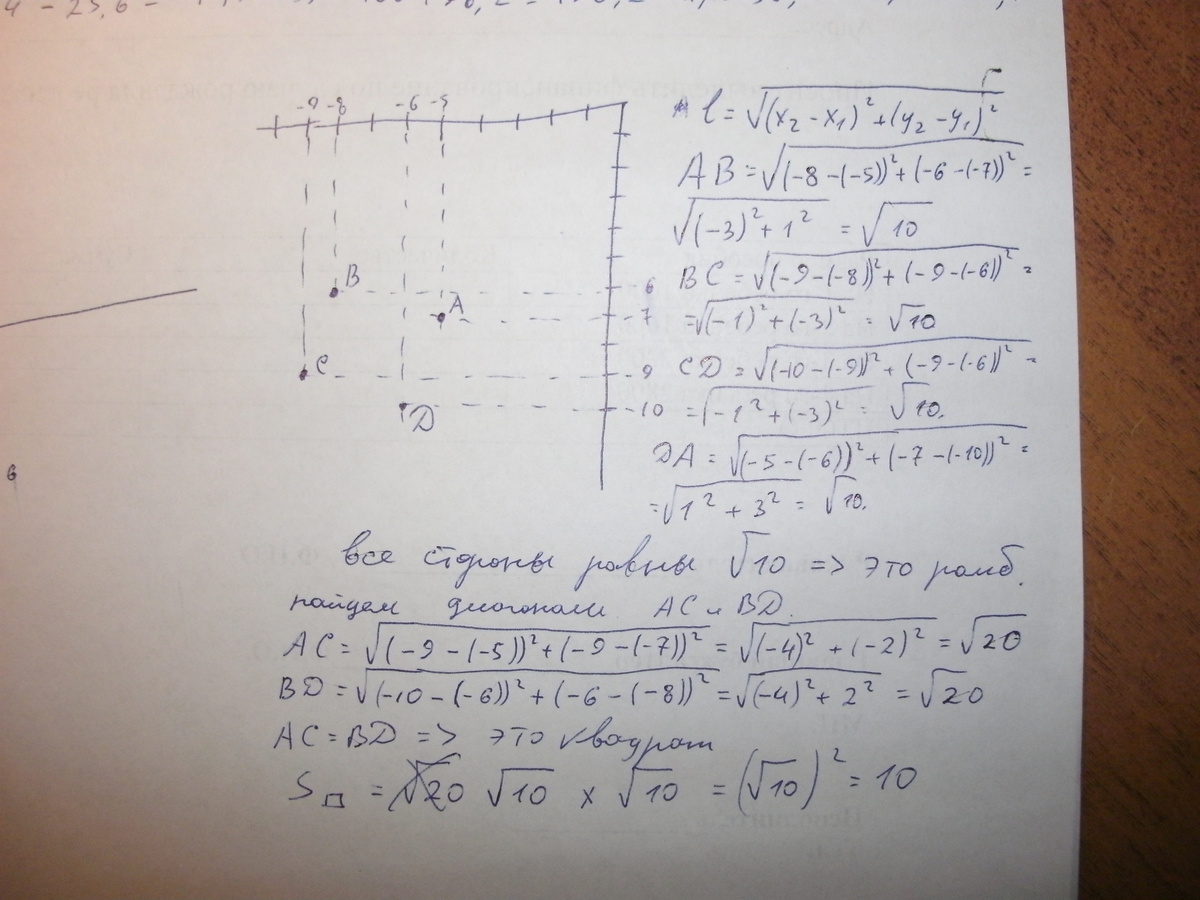 -9 -8 -6 -5
l = √(x₂ - x₁)² + (y₂ - y₁)²
AB = √(-8 -(-5))² + (-6 -(-7))² =
√(-3)² + 1² = √10
BC = √(-9 -(-8))² + (-9 -(-6))² =
= √(-1)² + (-3)² = √10
CD = √(-10 -(-9))² + (-9 -(-6))² =
= √-1² + (-3)² = √10.
DA = √(-5 -(-6))² + (-7 -(-10))² =
= √1² + 3² = √10.
B
A
C
D
6
7
9
10
все стороны равны √10 => это ромб.
найдем диагонали AC и BD.
AC = √(-9 -(-5))² + (-9 -(-7))² = √(-4)² + (-2)² = √20
BD = √(-10 -(-6))² + (-6 -(-8))² = √(-4)² + 2² = √20
AC = BD => это квадрат
S□ = √20 √10 x √10 = (√10)² = 10